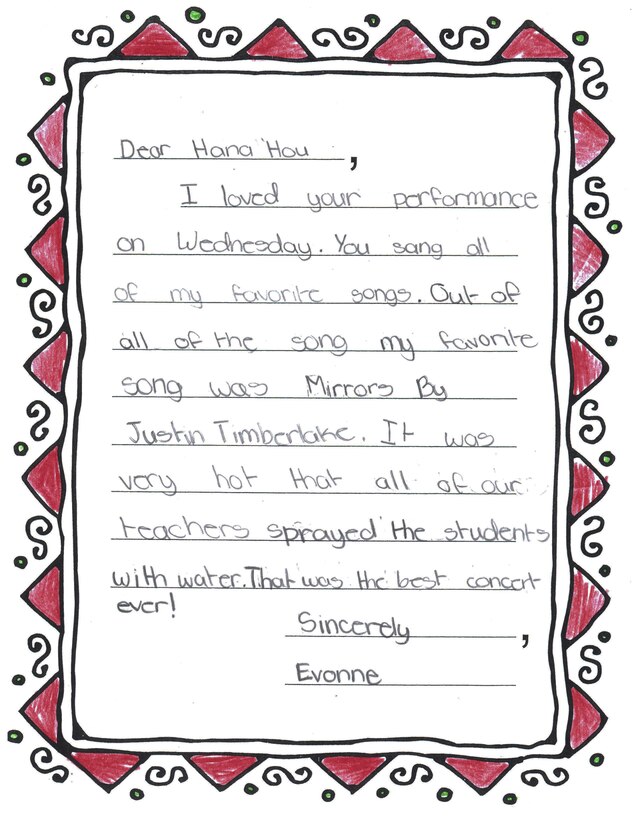 Dear Hana Hou,
I loved your performance
on Wednesday. You sang all
of my favorite songs. Out of
all of the song my favorite
song was Mirrors By
Justin Timberlake. It was
very hot that all of our
teachers sprayed the students
with water. That was the best concert
ever!
Sincerely,
Evonne